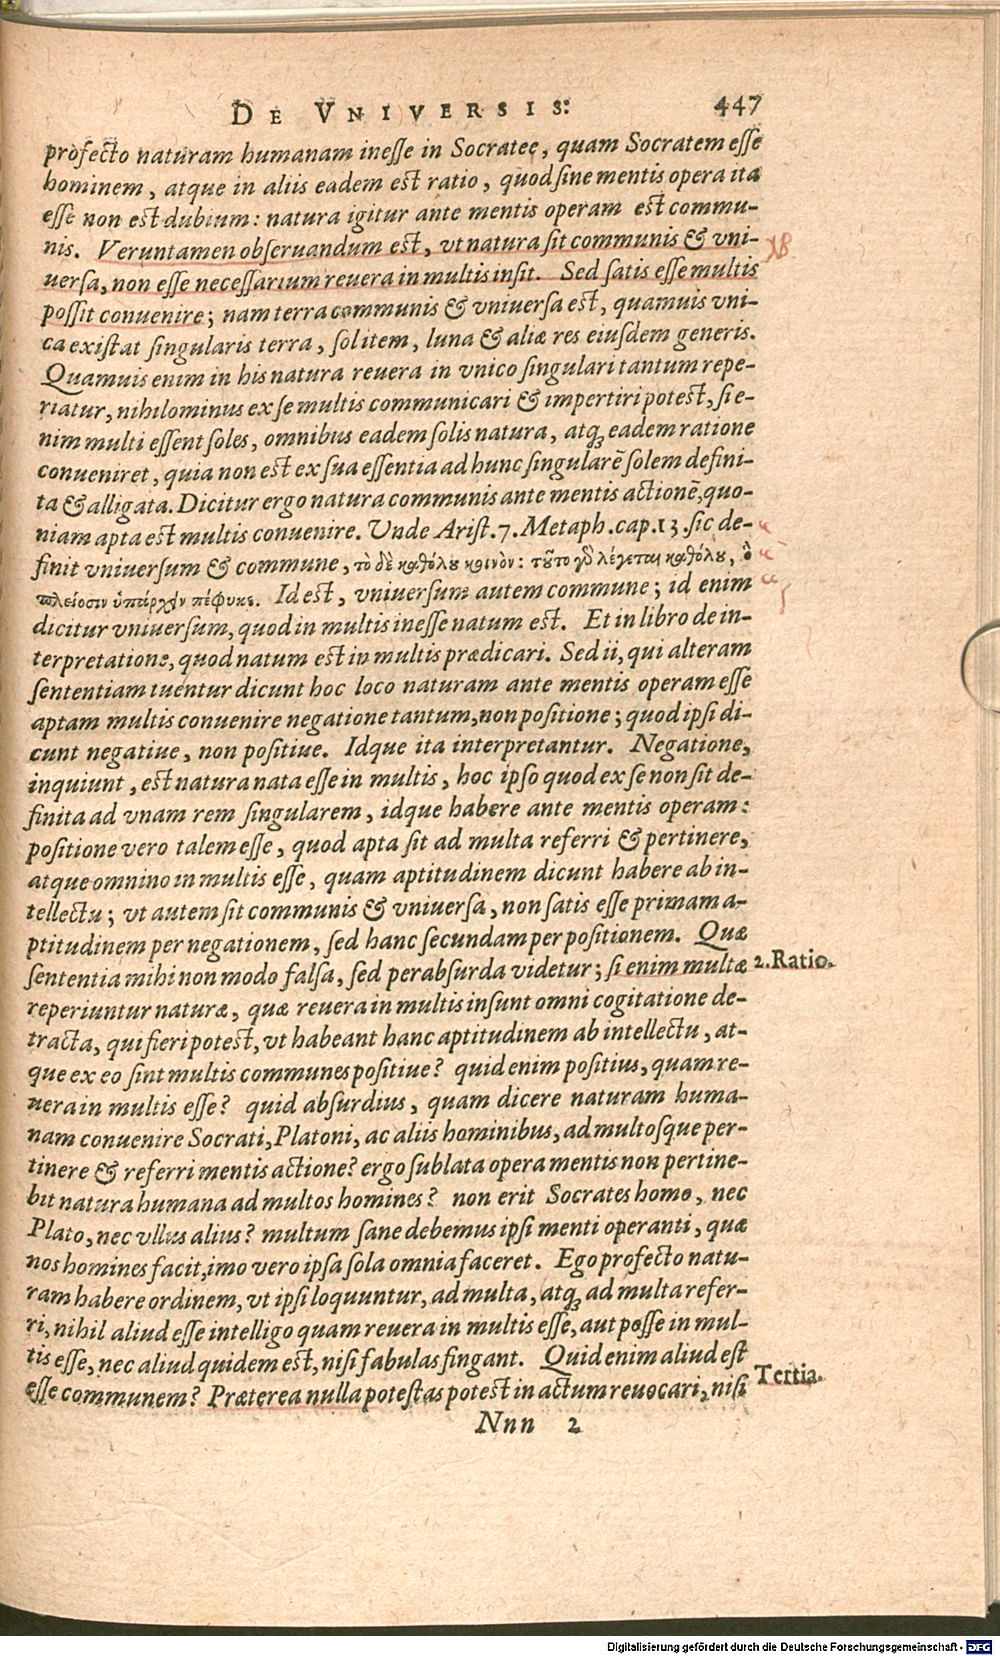 DE VNIVERSIS: 447
profecto naturam humanam inesse in Socratee, quam Socratem esse
hominem, atque in aliis eadem est ratio, quod sine mentis opera ita
esse non est dubium: natura igitur ante mentis operam est commu-
nis. Veruntamen obseruandum est, vt natura sit communis & vni-
uersa, non esse necessarium reuera in multis insit. Sed satis esse multis
possit conuenire; nam terra communis & vniuersa est, quamuis vni-
ca existat singularis terra, sol item, luna & aliæ res eiusdem generis.
Quamuis enim in his natura reuera in vnico singulari tantum repe-
riatur, nihilominus ex se multis communicari & impertiri potest, si e-
nim multi essent soles, omnibus eadem solis natura, atq; eadem ratione
conueniret, quia non est ex sua essentia ad hunc singularē solem defini-
ta & alligata. Dicitur ergo natura communis ante mentis actionē, quo-
niam apta est multis conuenire. Unde Arist. 7. Metaph. cap. 13. sic de-
finit vniuersum & commune, τὸ δὲ καθόλου κοινὸν: τοῦτο γὸ λέγεται καθόλου, ὃ
πλείοσιν ὑπάρχειν πέφυκε. Id est, vniuersum autem commune; id enim
dicitur vniuersum, quod in multis inesse natum est. Et in libro de in-
terpretatione, quod natum est in multis prædicari. Sed ii, qui alteram
sententiam tuentur dicunt hoc loco naturam ante mentis operam esse
aptam multis conuenire negatione tantum, non positione; quod ipsi di-
cunt negatiue, non positiue. Idque ita interpretantur. Negatione,
inquiunt, est natura nata esse in multis, hoc ipso quod ex se non sit de-
finita ad vnam rem singularem, idque habere ante mentis operam:
positione vero talem esse, quod apta sit ad multa referri & pertinere,
atque omnino in multis esse, quam aptitudinem dicunt habere ab in-
tellectu; vt autem sit communis & vniuersa, non satis esse primam a-
ptitudinem per negationem, sed hanc secundam per positionem. Quæ
sententia mihi non modo falsa, sed perabsurda videtur; si enim multæ 2. Ratio.
reperiuntur naturæ, quæ reuera in multis insunt omni cogitatione de-
tracta, qui fieri potest, vt habeant hanc aptitudinem ab intellectu, at-
que ex eo sint multis communes positiue? quid enim positius, quam re-
uera in multis esse? quid absurdius, quam dicere naturam huma-
nam conuenire Socrati, Platoni, ac aliis hominibus, ad multosque per-
tinere & referri mentis actione? ergo sublata opera mentis non pertine-
bit natura humana ad multos homines? non erit Socrates homo, nec
Plato, nec vllus alius? multum sane debemus ipsi menti operanti, quæ
nos homines facit, imo vero ipsa sola omnia faceret. Ego profecto natu-
ram habere ordinem, vt ipsi loquuntur, ad multa, atq; ad multa refer-
ri, nihil aliud esse intelligo quam reuera in multis esse, aut posse in mul-
tis esse, nec aliud quidem est, nisi fabulas fingant. Quid enim aliud est
esse communem? Præterea nulla potestas potest in actum reuocari, nisi Tertia.
Nnn 2
Digitalisierung gefördert durch die Deutsche Forschungsgemeinschaft - DFG